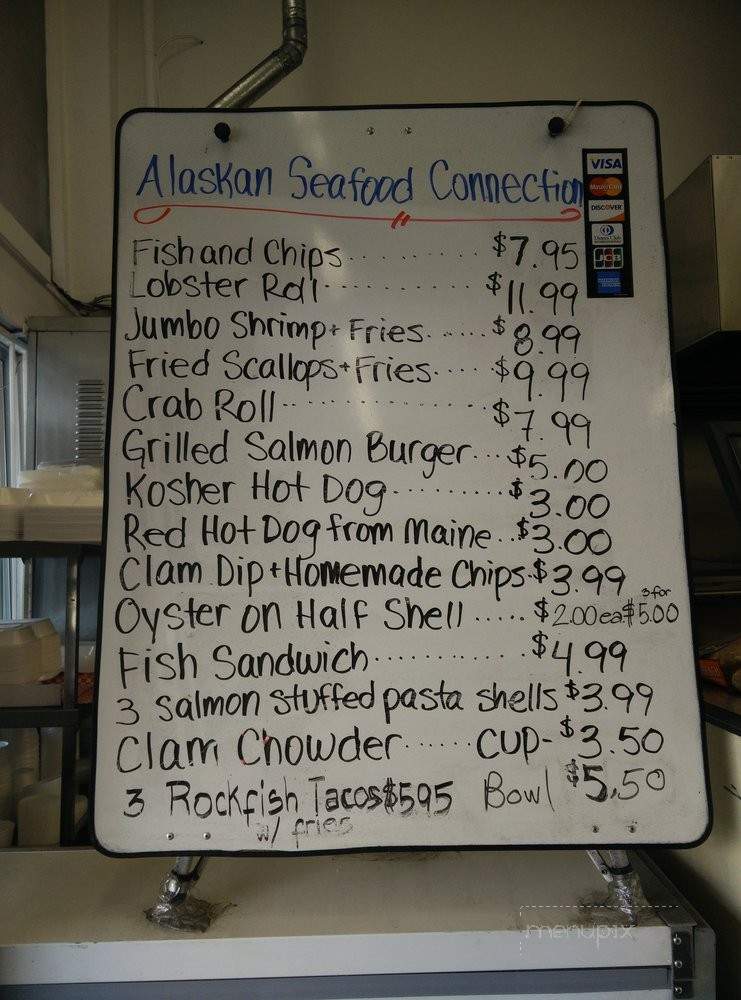 Alaskan Seafood Connection
VISA
MasterCard
DISCOVER
Diners Club
JCB
AMERICAN EXPRESS
Fish and Chips.......... $7.95
Lobster Roll............ $11.99
Jumbo Shrimp + Fries...... $8.99
Fried Scallops + Fries..... $9.99
Crab Roll................ $7.99
Grilled Salmon Burger... $5.00
Kosher Hot Dog......... $3.00
Red Hot Dog from Maine.. $3.00
Clam Dip + Homemade Chips. $3.99
Oyster on Half Shell ..... $2.00 ea 3 for $5.00
Fish Sandwich............ $4.99
3 Salmon stuffed pasta shells $3.99
Clam Chowder...... CUP- $3.50
3 Rockfish Tacos $595 Bowl $5.50
w/ fries
menupix